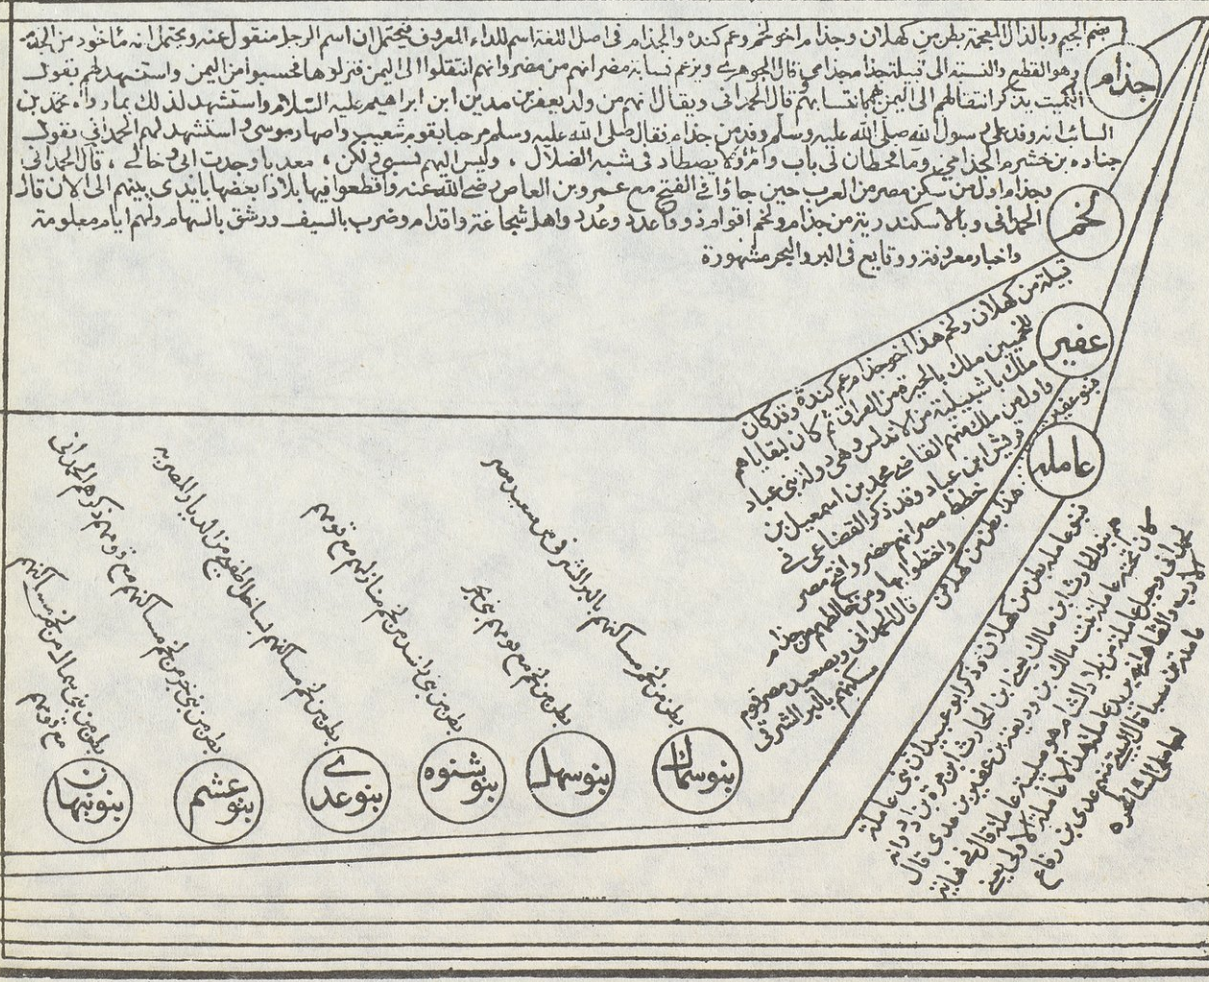 جذام
بضم الجيم وبالذال المعجمة بطن من كهلان وجذام اخو لخم وعم كنده والجذام فى اصل اللغة اسم للداء المعروف فيحتمل ان اسم الرجل منقول عنه ويحتمل انه مأخوذ من الجذم
وهو القطع والنسبة الى قبيلة جذام جذامي قال الجوهرى ويزعم نسابة مضر انهم من مضر وانهم انتقلوا الى اليمن فنزلوها فحسبوا من اليمن واستشهد لهم بقول
الكميت يذكر انتقالهم الى اليمن بانتسابهم قال الحمدانى ويقال انهم من ولد يعفر بن مدين ابن ابراهيم عليه السلام واستشهد لذلك بما رواه محمد بن
السائب انه وفد على رسول الله صلى الله عليه وسلم وفد من جذام فقال صلى الله عليه وسلم مرحبا بقوم شعيب واصهار موسى واستشهد لهم الحمدانى بقول
جناده بن خشرم الجذامي وما قحطان لى باب وام ولا يصطاد فى شبه الضلال ، وليس اليهم نسبى ولكن ، معديا وجدت ابى وخالى ، قال الحمدانى
وجذام اول من سكن مصر من العرب حين جاؤا فى الفتح مع عمرو بن العاص رضى الله عنه واقطعوا فيها بلادا بعضها بايدى بنيهم الى الان قال
الحمدانى وبالاسكندرية من جذام ولخم اقوام ذو وعدد وعُدد واهل شجاعة واقدام وضرب بالسيف ورشق بالسهام ولهم ايام معلومة
واخبار معروفة ووقايع فى البر والبحر مشهورة
لخم
قبيلة من كهلان ولخم هذا اخو جذام وعم كندة وقد كان
للخميين ملك بالحيرة من العراق ثم كان لبقاياهم
ملك باشبيلية من الاندلس وهى دولة بنى عباد
واول من ملك منهم القاضى محمد بن اسمعيل بن
قريش ابن عباد وقد ذكر القضاعى فى
خطط مصر انهم حضروا فتح مصر
واختطوا بها ومن خالطهم من جذام
قال الحمدانى وبصعيد مصر قوم
مسكنهم بالبر الشرقى
عفير
بنو عفير
هذا بطن من كهلان
عامله
بنو عامله بطن من كهلان وذكر ابو عبيد ان بنى عاملة
هم بنو الحارث ابن مالك يعنى ابن الحارث ابن مرة بن ادد وانه
كان تحته عاملة بنت مالك بن وديعة بن عفير بن عدى قال
الحمدانى وجبل عاملة من بلاد الشام هو
عاملة بن سبا قال
منهم عدى بن رقاع
الشاعر
بنو سماك
بطن من لخم مساكنهم بالبر الشرقى من صعيد مصر
بنو سهل
بطن من لخم مع قومهم بنى بحر
بنو شنوه
بطن من بنى راشد من لخم منازلهم مع قومهم
بنو عدى
بطن من لخم مساكنهم بساحل اطفيح من الديار المصريه
بنو عشم
بطن من بنى جرير من لخم مساكنهم مع قومهم ذكرهم الحمدانى
بنو نبهان
بطن من بنى سماك من لخم مساكنهم
مع قومهم